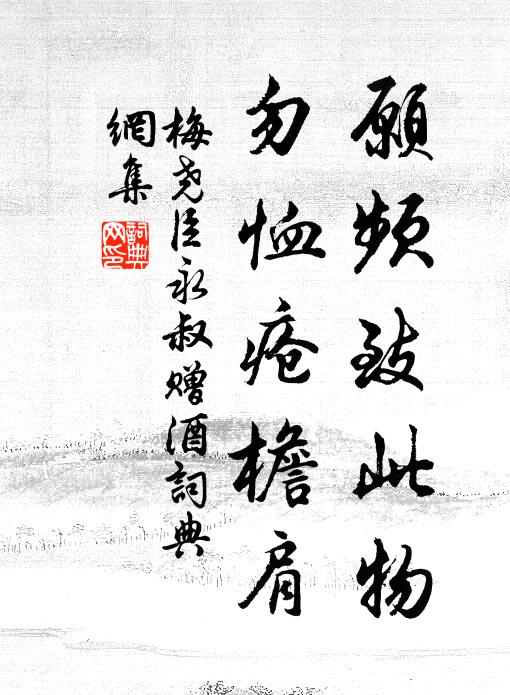 願頻致此物
勿恤瘡檐肩
梅堯臣永叔赠酒詞典
網集
詞典
网印